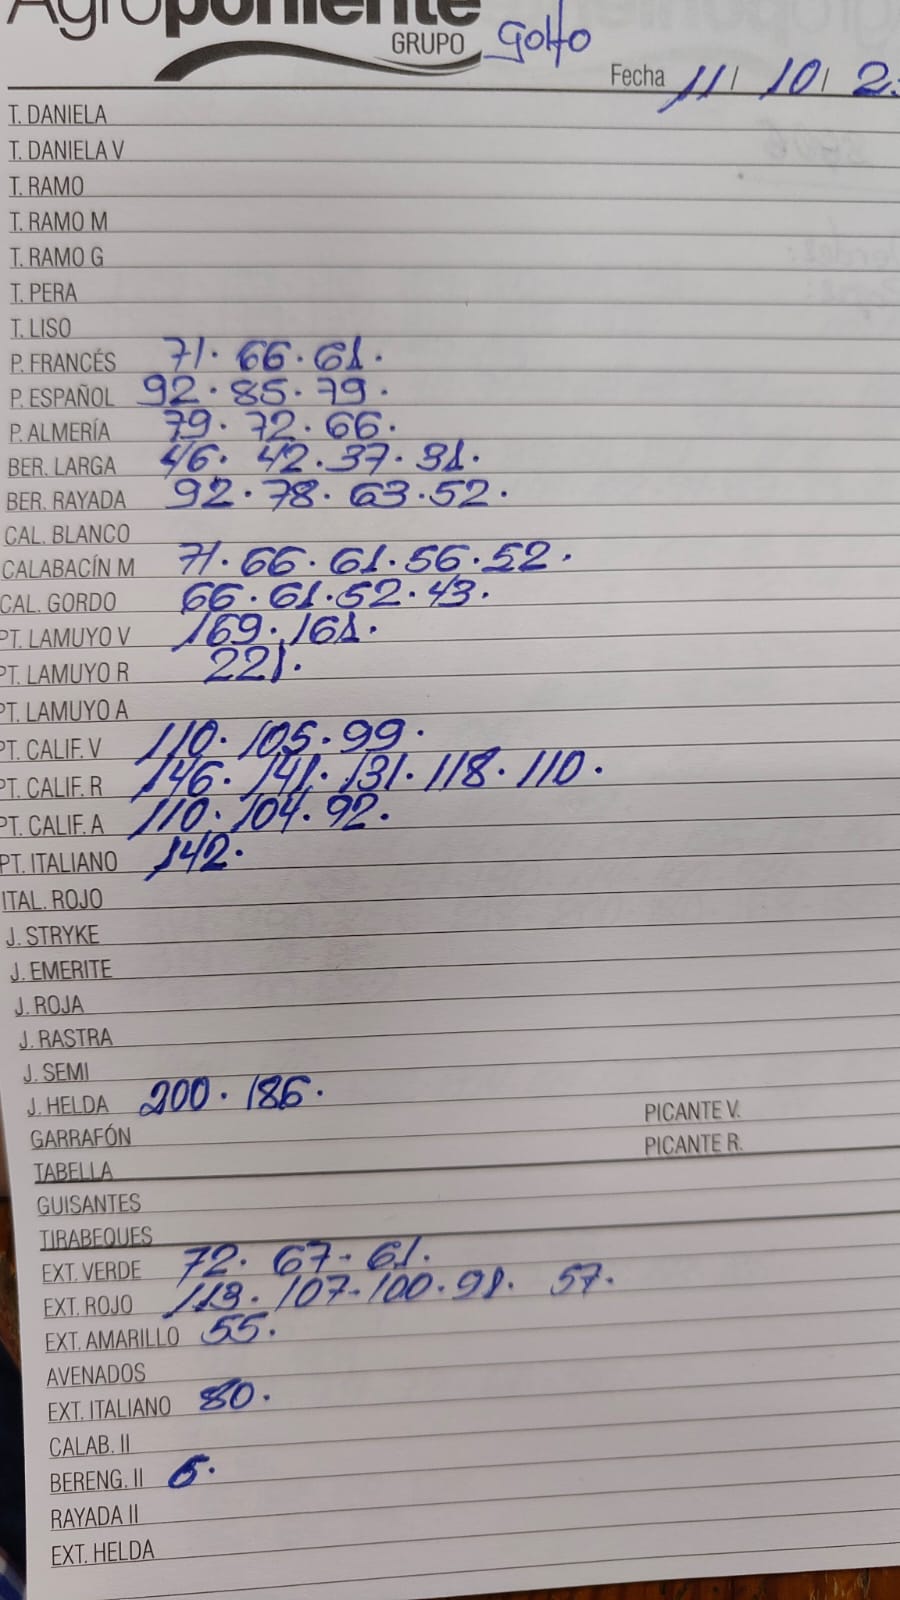 Agroponiente
GRUPO
Golfo
Fecha 11/ 10/ 2
T. DANIELA
T. DANIELA V
T. RAMO
T. RAMO M
T. RAMO G
T. PERA
T. LISO
P. FRANCÉS 71. 66. 61.
P. ESPAÑOL 92. 85. 79.
P. ALMERÍA 79. 72. 66.
BER. LARGA 46. 42. 37. 31.
BER. RAYADA 92. 78. 63. 52.
CAL. BLANCO
CALABACÍN M 71. 66. 61. 56. 52.
CAL. GORDO 66. 61. 52. 43.
PT. LAMUYO V 169. 161.
PT. LAMUYO R 221.
PT. LAMUYO A
PT. CALIF. V 110. 105. 99.
PT. CALIF. R 146. 141. 131. 118. 110.
PT. CALIF. A 110. 104. 92.
PT. ITALIANO 142.
ITAL. ROJO
J. STRYKE
J. EMERITE
J. ROJA
J. RASTRA
J. SEMI
J. HELDA 200. 186.
GARRAFÓN PICANTE V.
TABELLA PICANTE R.
GUISANTES
TIRABEQUES
EXT. VERDE 72. 67- 61.
EXT. ROJO 113. 107-100. 57.
EXT. AMARILLO 55.
AVENADOS
EXT. ITALIANO 80.
CALAB. II
BERENG. II
RAYADA II
EXT. HELDA